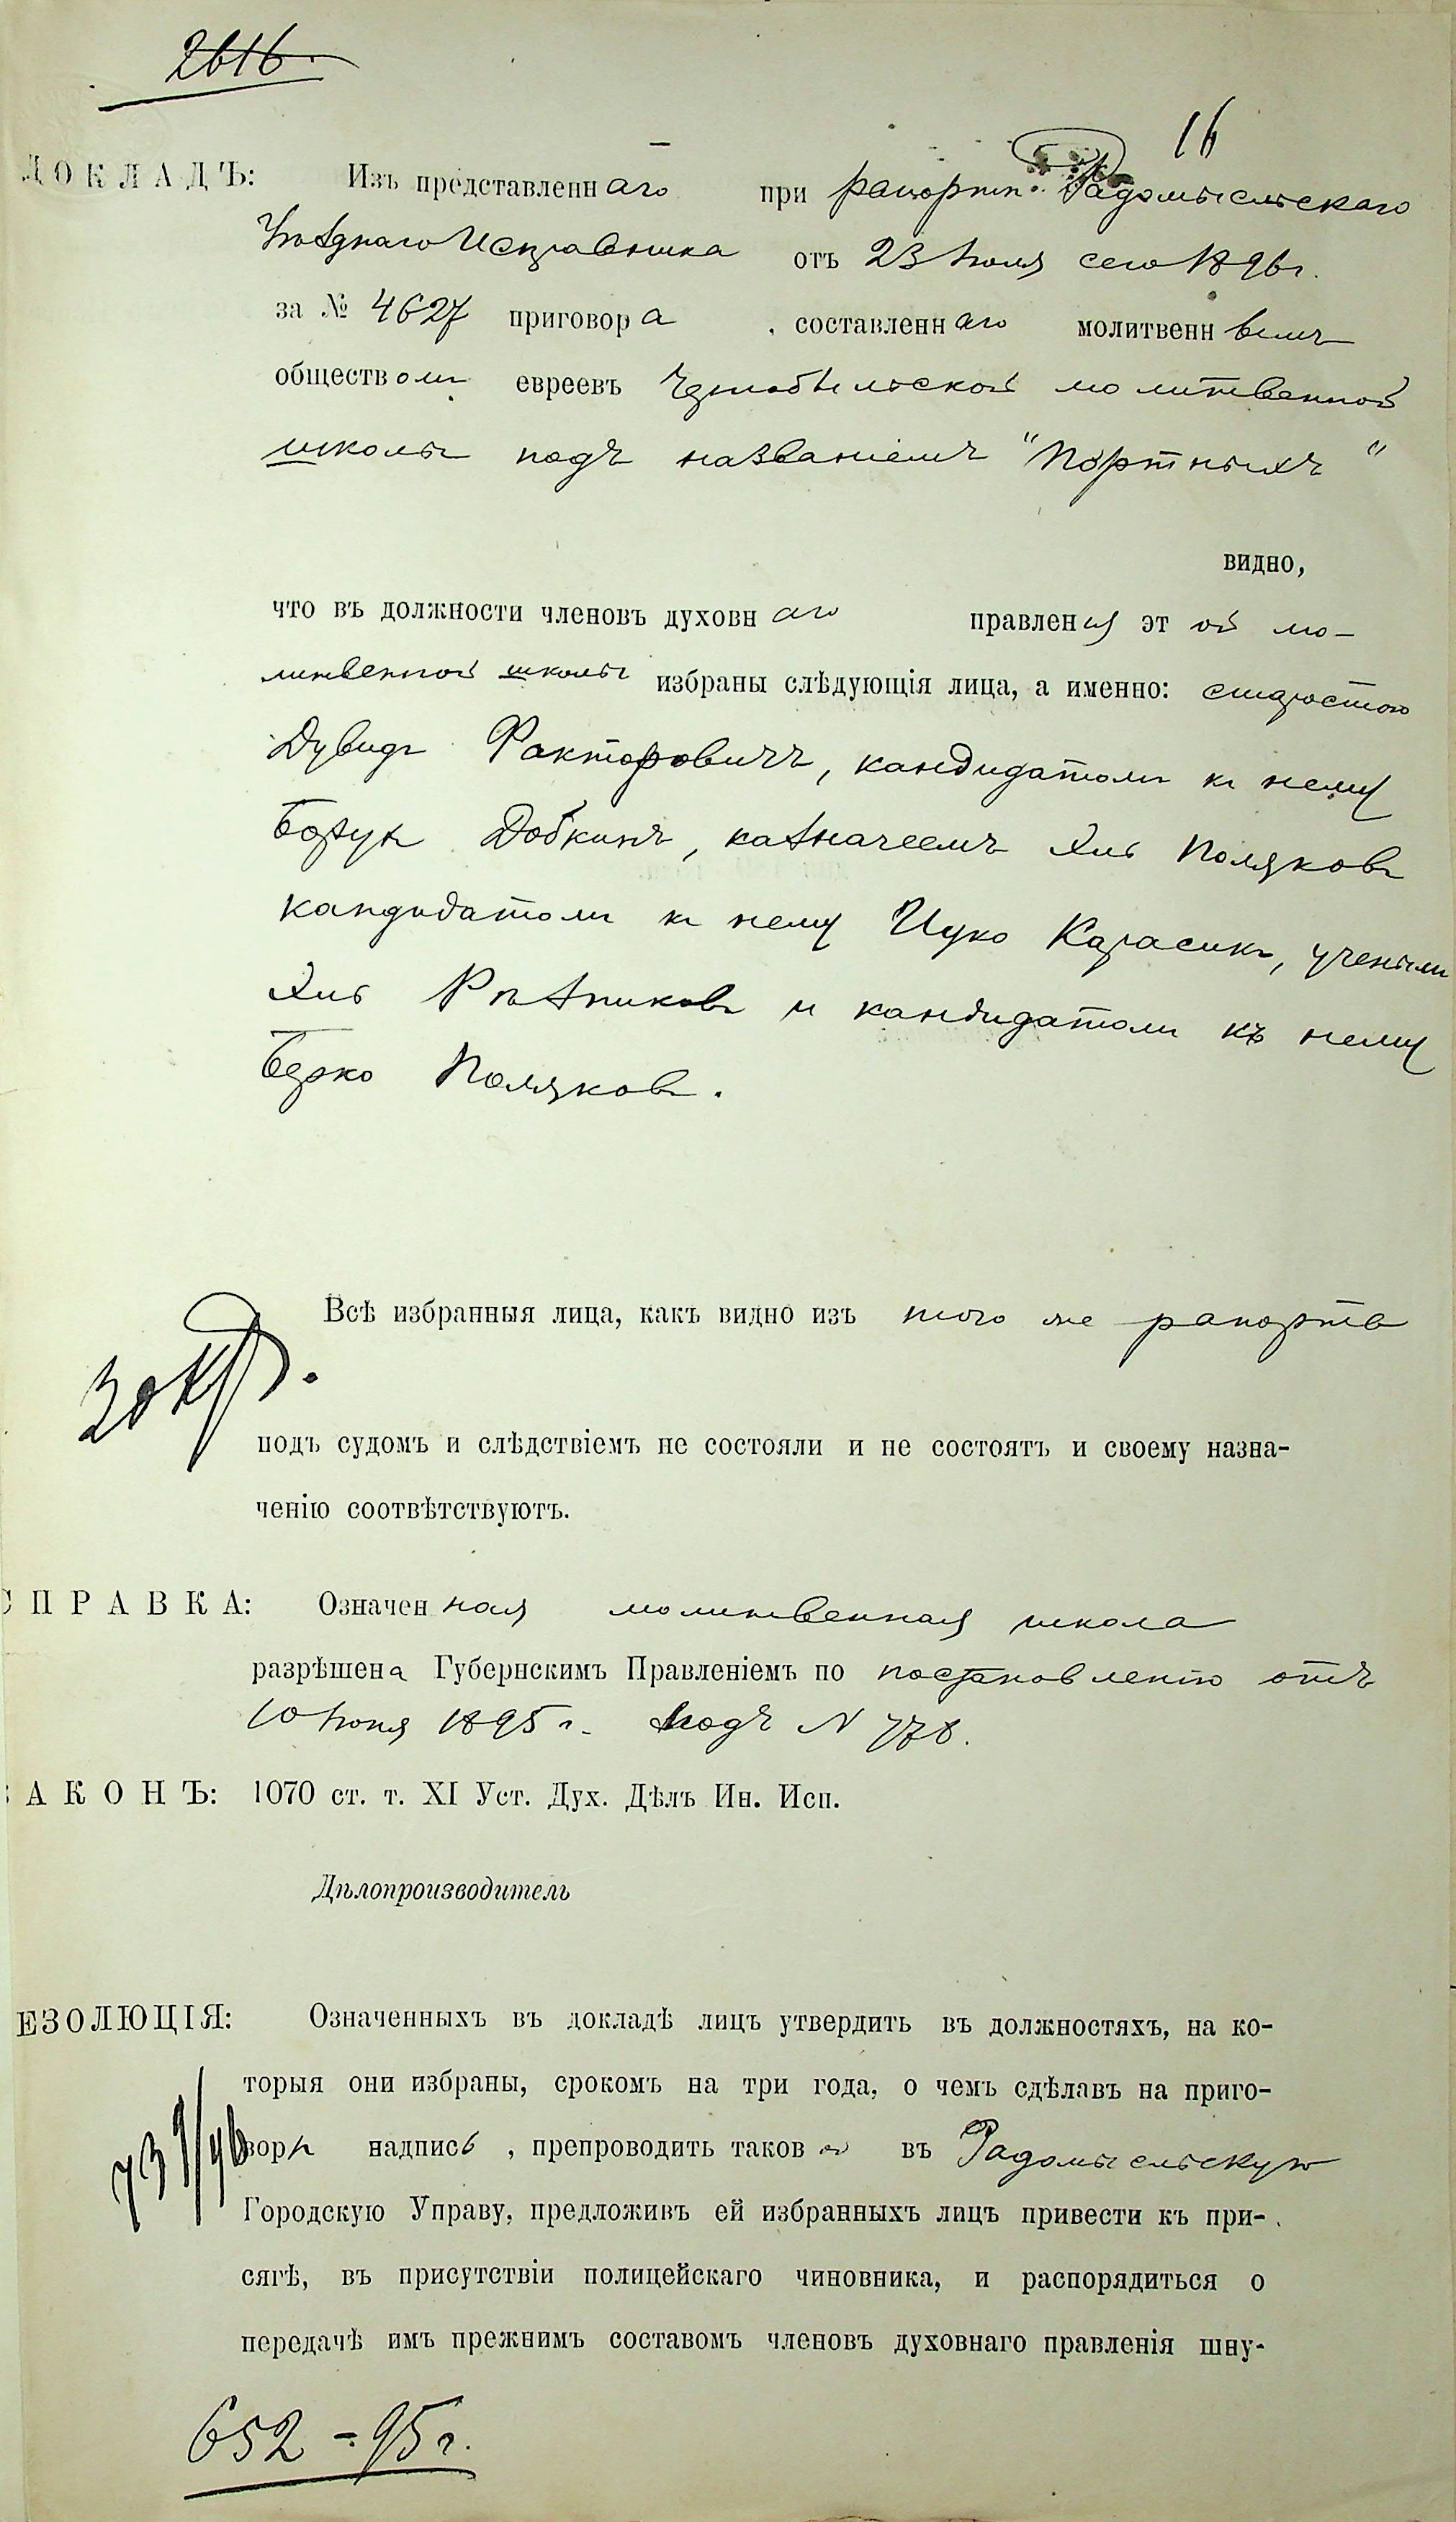 2616.
16
ДОКЛАДЪ: Изъ представленнаго при рапортѣ Радомысльскаго
Уѣзднаго Исправника отъ 23 Іюля сего 1896 г.
за № 4627 приговора, составленнаго молитвеннымъ
обществомъ евреевъ Чернобыльской молитвенной
школы подъ названіемъ "Портныхъ"
видно,
что въ должности членовъ духовнаго правленія этой мо-
литвенной школы избраны слѣдующія лица, а именно: старостою
Дувидъ Факторовичъ, кандидатомъ къ нему
Борухъ Добкинъ, казначеемъ Хиль Поляковъ
кандидатомъ къ нему Ицко Карасикъ, ученымъ
Хиль Рѣзниковъ и кандидатомъ къ нему
Берко Поляковъ.
Всѣ избранныя лица, какъ видно изъ того же рапорта
подъ судомъ и слѣдствіемъ не состояли и не состоятъ и своему назна-
ченію соотвѣтствуютъ.
СПРАВКА: Означенная молитвенная школа
разрѣшена Губернскимъ Правленіемъ по постановленію отъ
10 Іюня 1895 г. подъ N 778.
ЗАКОНЪ: 1070 ст. т. XI Уст. Дух. Дѣлъ Ин. Исп.
Дѣлопроизводитель
ЕЗОЛЮЦІЯ: Означенныхъ въ докладѣ лицъ утвердить въ должностяхъ, на ко-
торыя они избраны, срокомъ на три года, о чемъ сдѣлавъ на приго-
ворѣ надпись, препроводить таковой въ Радомысльскую
Городскую Управу, предложивъ ей избранныхъ лицъ привести къ при-
сягѣ, въ присутствіи полицейскаго чиновника, и распорядиться о
передачѣ имъ прежнимъ составомъ членовъ духовнаго правленія шну-
652 - 95 г.